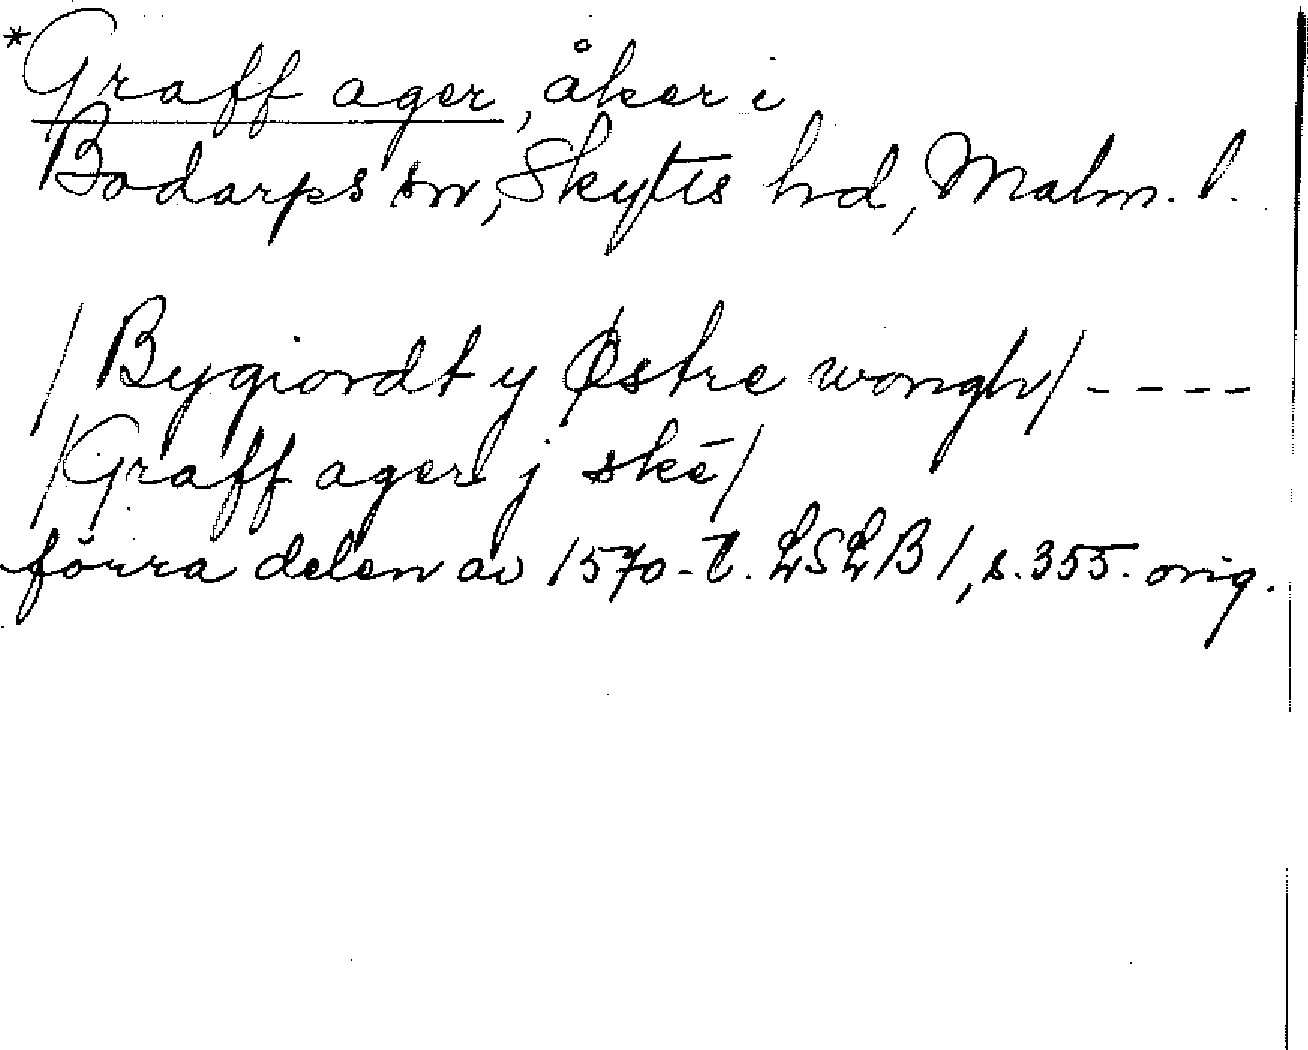 *Graff ager, åker i
Bodarps sn, Skytts hd, Malm. l.
/Bygiordt y Østre wongh/ - - - -
/Graff ager j skē/
förra delen av 1570-t. LSLB 1, s. 355. orig.